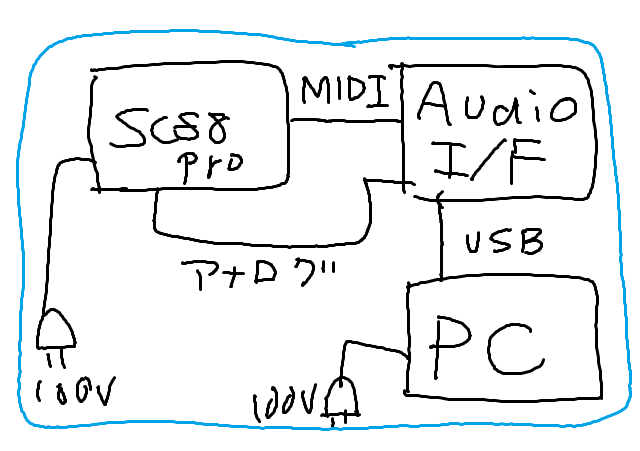 SC88
pro
MIDI
Audio
I/F
アナログ
USB
PC
100V
100V